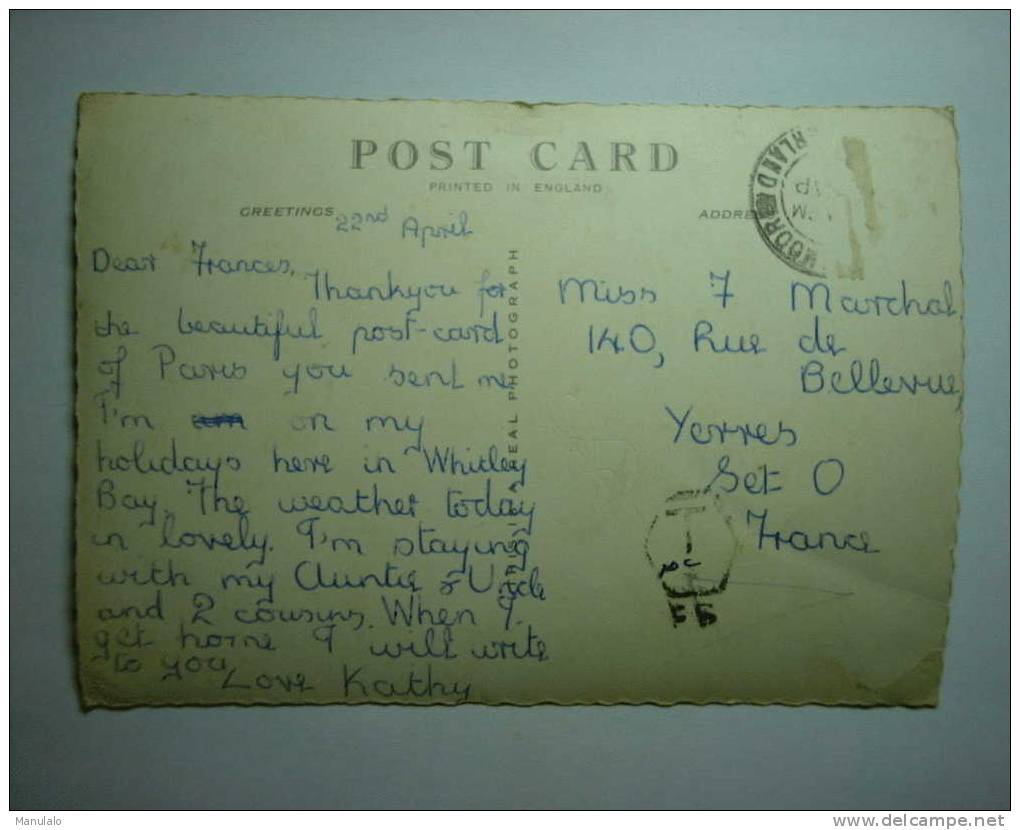 POST CARD
PRINTED IN ENGLAND
GREETINGS
22nd April
Dear Frances,
Thankyou for
the beautiful post-card
of Paris you sent me
I'm am on my
holidays here in Whitley
Bay. The weather today
in lovely. I'm staying
with my Auntie & Uncle
and 2 cousins. When I
get home I will write
to you
Love Kathy
REAL PHOTOGRAPH
ADDRESS
Miss F Marchal
140, Rue de
Bellevue,
Yerres
Set O
France
T
Manulalo
www.delcampe.net